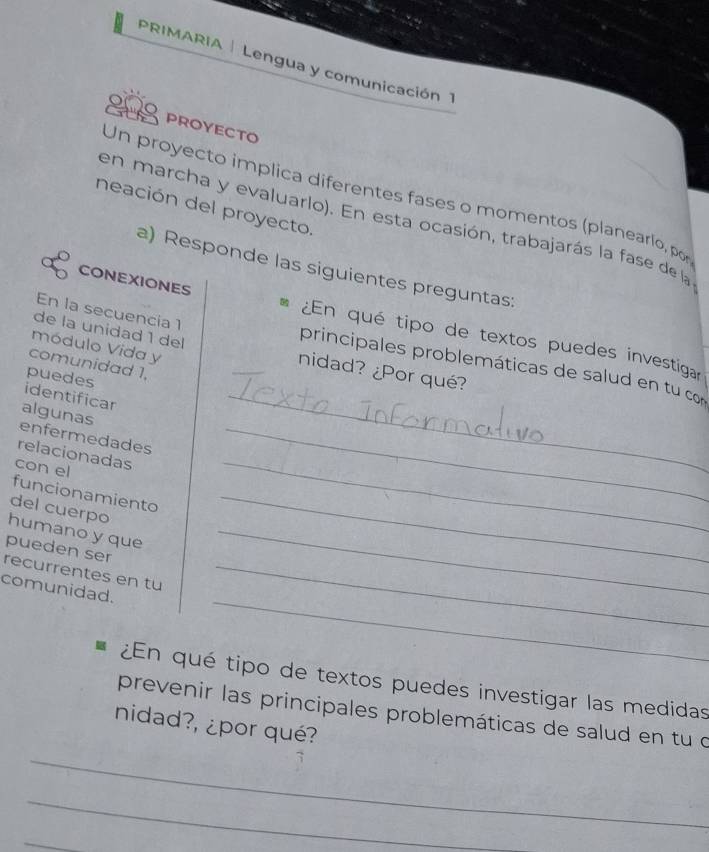 PRIMARIA | Lengua y comunicación 1
PROYECTO
Un proyecto implica diferentes fases o momentos (planearlo, pon
en marcha y evaluarlo). En esta ocasión, trabajarás la fase de la
neación del proyecto.
a) Responde las siguientes preguntas:
CONEXIONES
En la secuencia 1
de la unidad 1 del
módulo Vida y
comunidad 1,
puedes
identificar
algunas
enfermedades
relacionadas
con el
funcionamiento
del cuerpo
humano y que
pueden ser
recurrentes en tu
comunidad.
¿En qué tipo de textos puedes investigar
principales problemáticas de salud en tu com
nidad? ¿Por qué?
Texto Informativo
¿En qué tipo de textos puedes investigar las medidas
prevenir las principales problemáticas de salud en tu c
nidad?, ¿por qué?